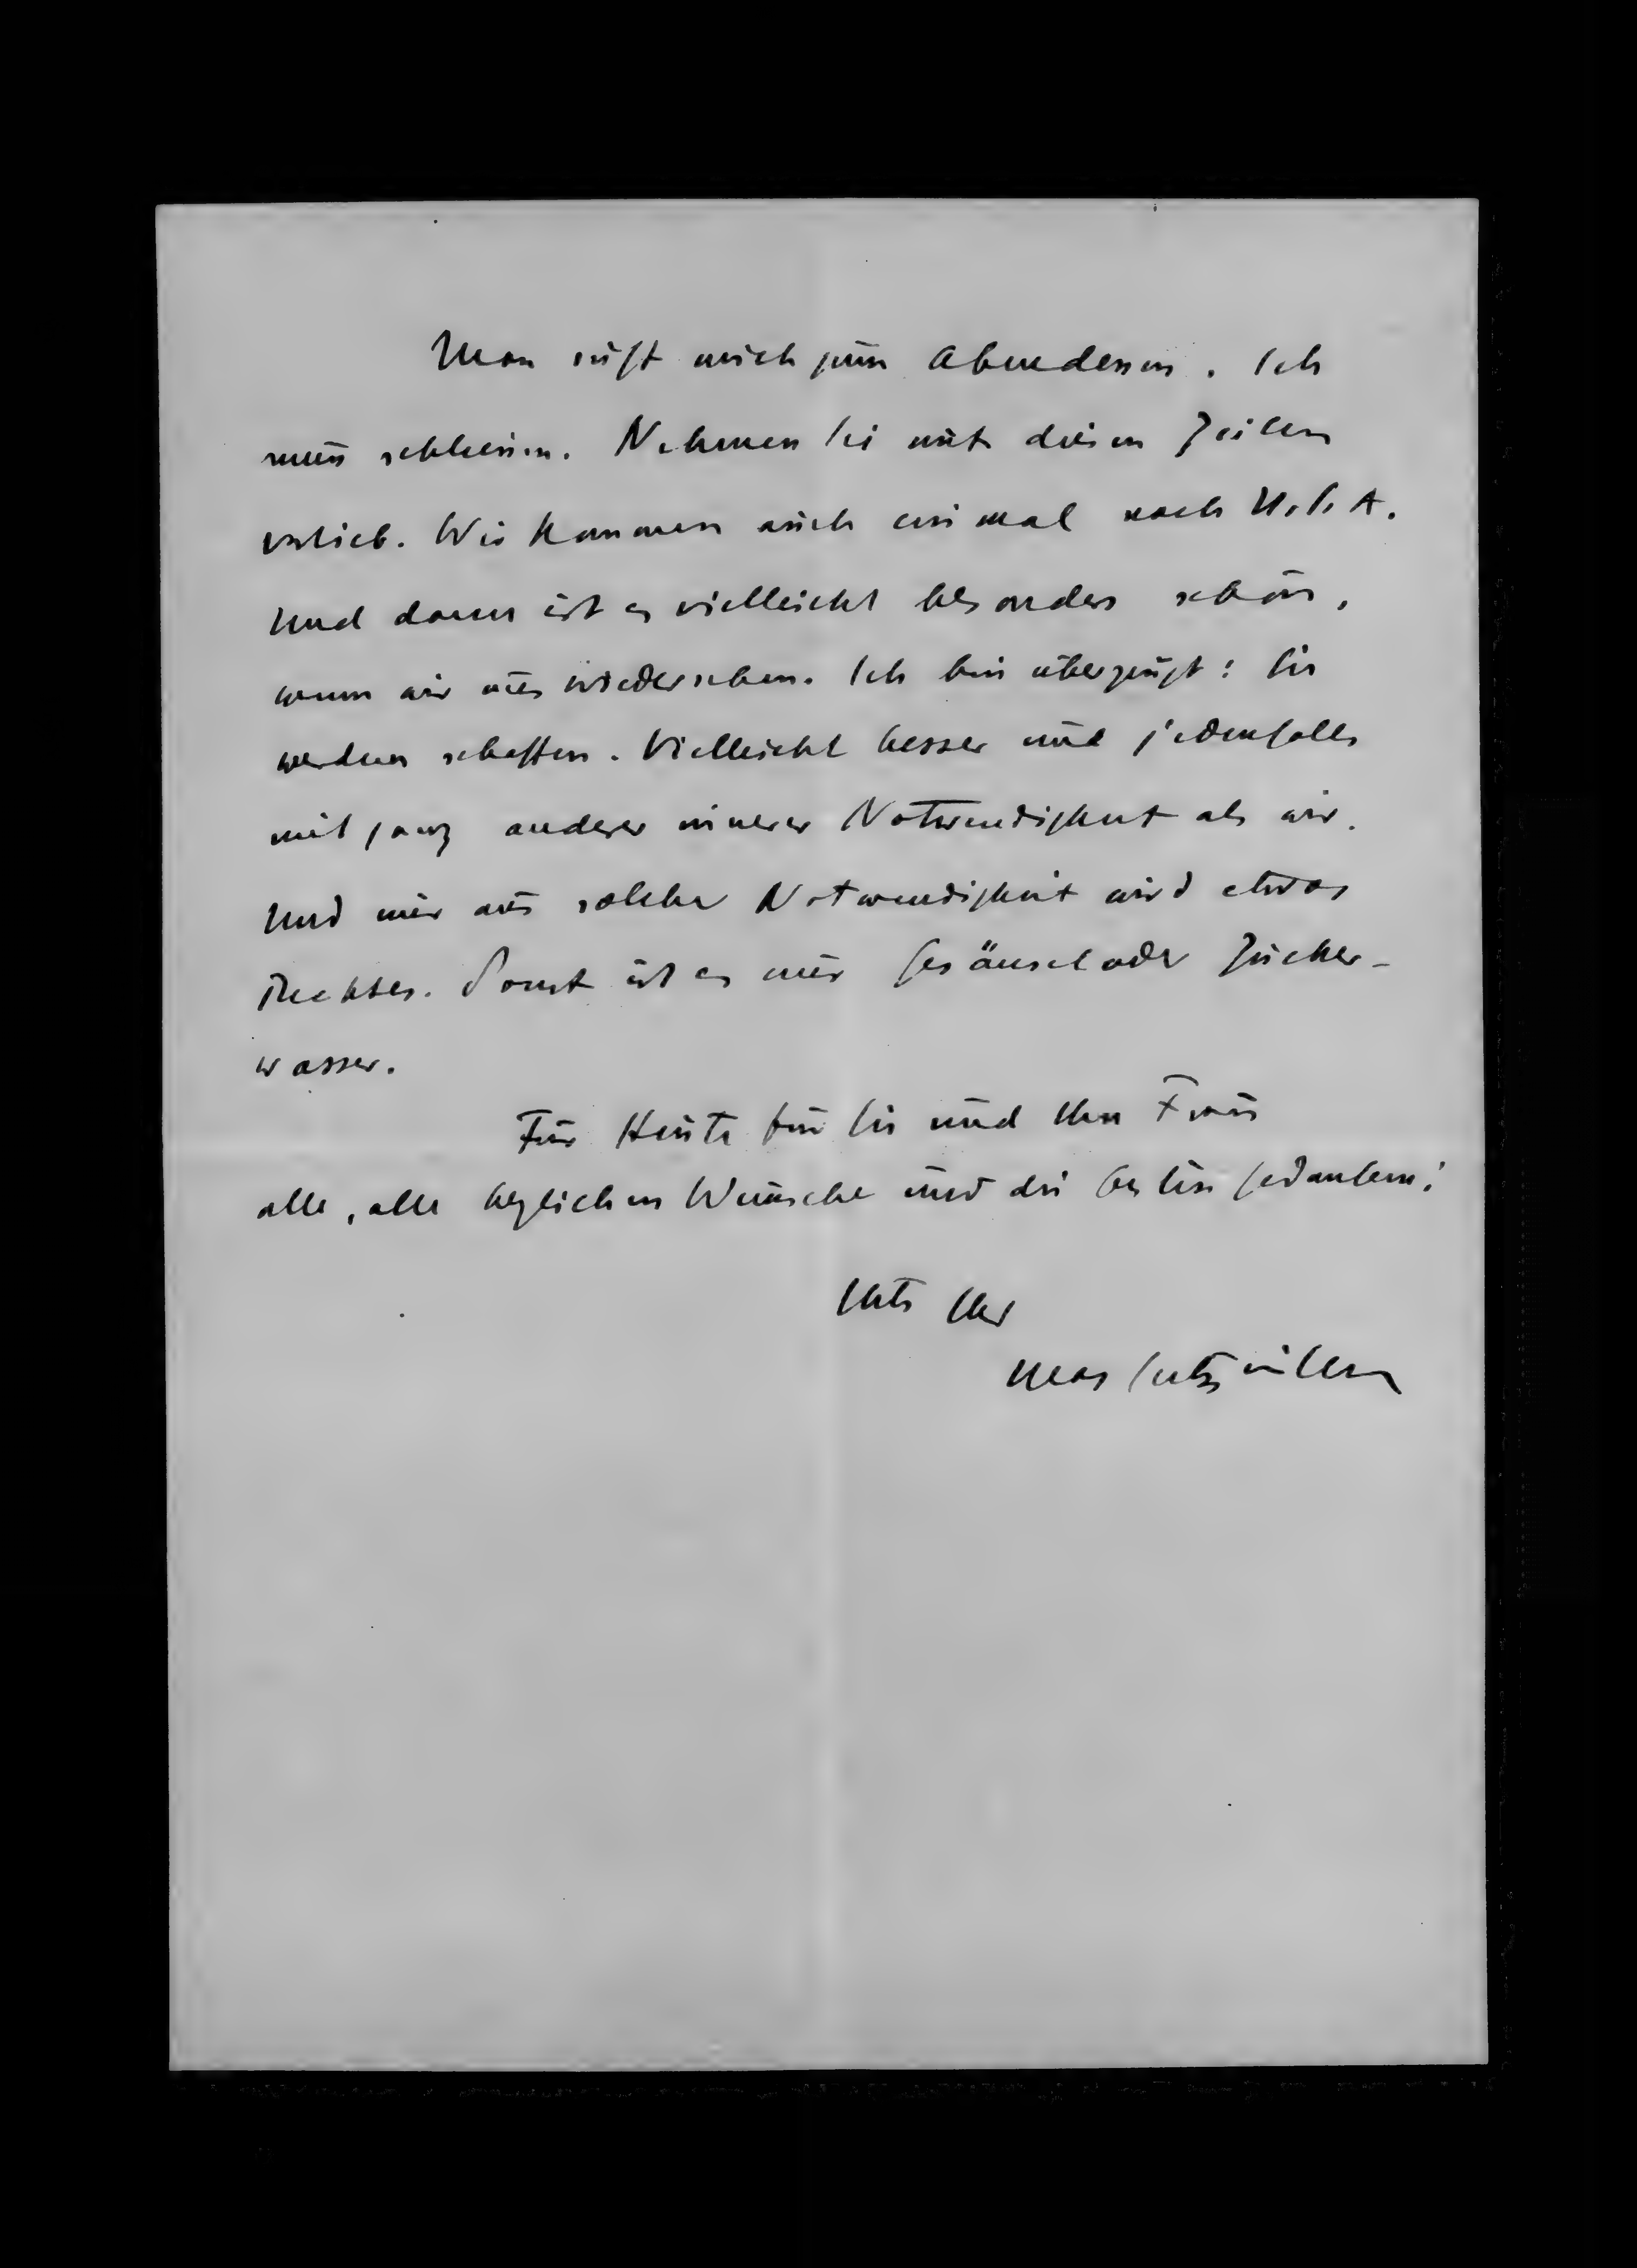 Man ruft mich zum Abendessen. Ich
muss schliessen. Nehmen Sie mit diesen Zeilen
vorlieb. Wir kommen auch einmal nach U.S.A.
Und dann ist es vielleicht besonders schön,
wenn wir uns wiedersehen. Ich bin überzeugt: Sie
werden schaffen. Vielleicht besser und jedenfalls
mit ganz anderer innerer Notwendigkeit als wir.
Und nur aus solcher Notwendigkeit wird etwas
Rechtes. Sonst ist es nur Gesäusel oder Zucker-
wasser.
Für Heute für Sie und Ihre Frau
alle, alle herzlichen Wünsche und die besten Gedanken!
Stets Ihr
Max